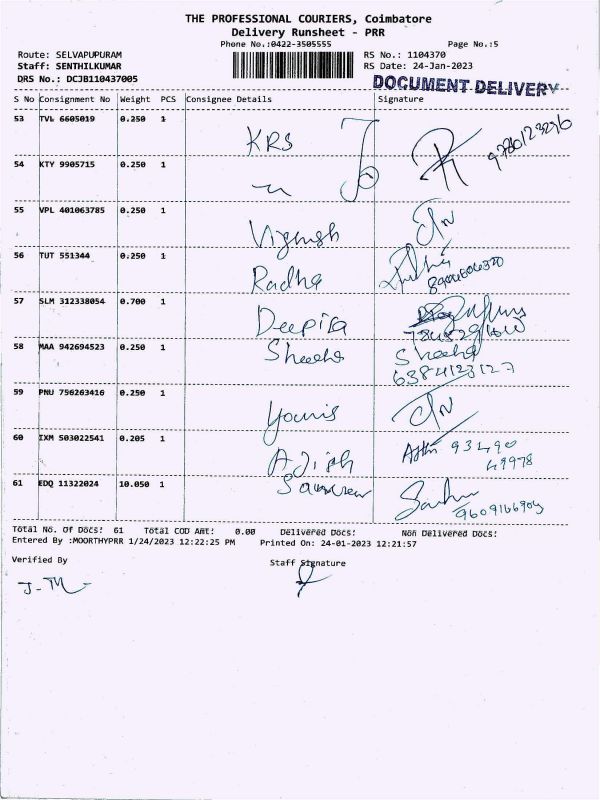 THE PROFESSIONAL COURIERS, Coimbatore
Delivery Runsheet - PRR
Phone No.:0422-3505555 Page No.:5
Route: SELVAPUPURAM RS No.: 1104370
Staff: SENTHILKUMAR RS Date: 24-Jan-2023
DRS No.: DCJB110437005 DOCUMENT DELIVERY
S No Consignment No Weight PCS Consignee Details Signature
53 TVL 6605019 0.250 1 KRS
54 KTY 9905715 0.250 1
55 VPL 401063785 0.250 1 Vignesh
56 TUT 551344 0.250 1 Radha
57 SLM 312338054 0.700 1 Deepisa
58 MAA 942694523 0.250 1 Sheeha Sheeha
6384123127
59 PNU 756263416 0.250 1 Younis
60 IXM 503022541 0.205 1 Ajish 93490
49978
61 EDQ 11322024 10.050 1 9609166909
Total No. Of Docs: 61 Total COD Amt: 0.00 Delivered Docs: Non Delivered Docs:
Entered By :MOORTHYPRR 1/24/2023 12:22:25 PM Printed On: 24-01-2023 12:21:57
Verified By Staff Signature